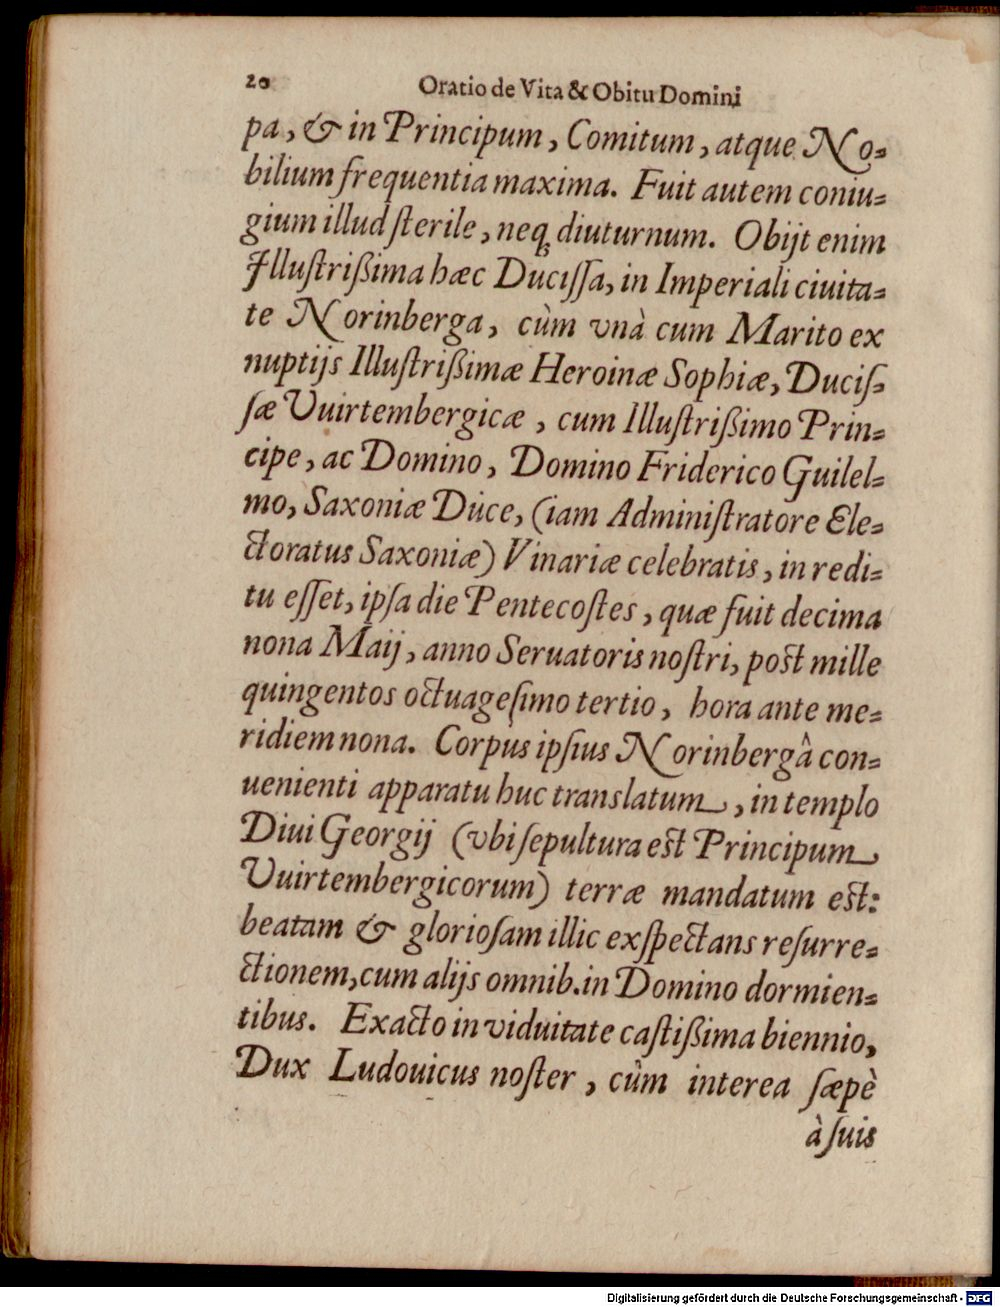 20 Oratio de Vita & Obitu Domini
pa, & in Principum, Comitum, atque No-
bilium frequentia maxima. Fuit autem coniu-
gium illud ſterile, neq; diuturnum. Obijt enim
Illuſtrißima hæc Duciſſa, in Imperiali ciuita-
te Norinberga, cùm vnà cum Marito ex
nuptijs Illuſtrißimæ Heroinæ Sophiæ, Duciſ-
ſæ Vuirtembergicæ, cum Illuſtrißimo Prin-
cipe, ac Domino, Domino Friderico Guilel-
mo, Saxoniæ Duce, (iam Adminiſtratore Ele-
ctoratus Saxoniæ) Vinariæ celebratis, in redi-
tu eſſet, ipſa die Pentecoſtes, quæ fuit decima
nona Maij, anno Seruatoris noſtri, poſt mille
quingentos octuageſimo tertio, hora ante me-
ridiem nona. Corpus ipſius Norinbergâ con-
uenienti apparatu huc translatum, in templo
Diui Georgij (vbi ſepultura eſt Principum
Vuirtembergicorum) terræ mandatum eſt:
beatam & glorioſam illic exſpectans reſurre-
ctionem, cum alijs omnib. in Domino dormien-
tibus. Exacto in viduitate caſtißima biennio,
Dux Ludouicus noſter, cùm interea ſæpè
à ſuis
Digitalisierung gefördert durch die Deutsche Forschungsgemeinschaft - DFG